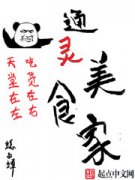 通灵美食家
吃货在右
天堂在左
起点中文网